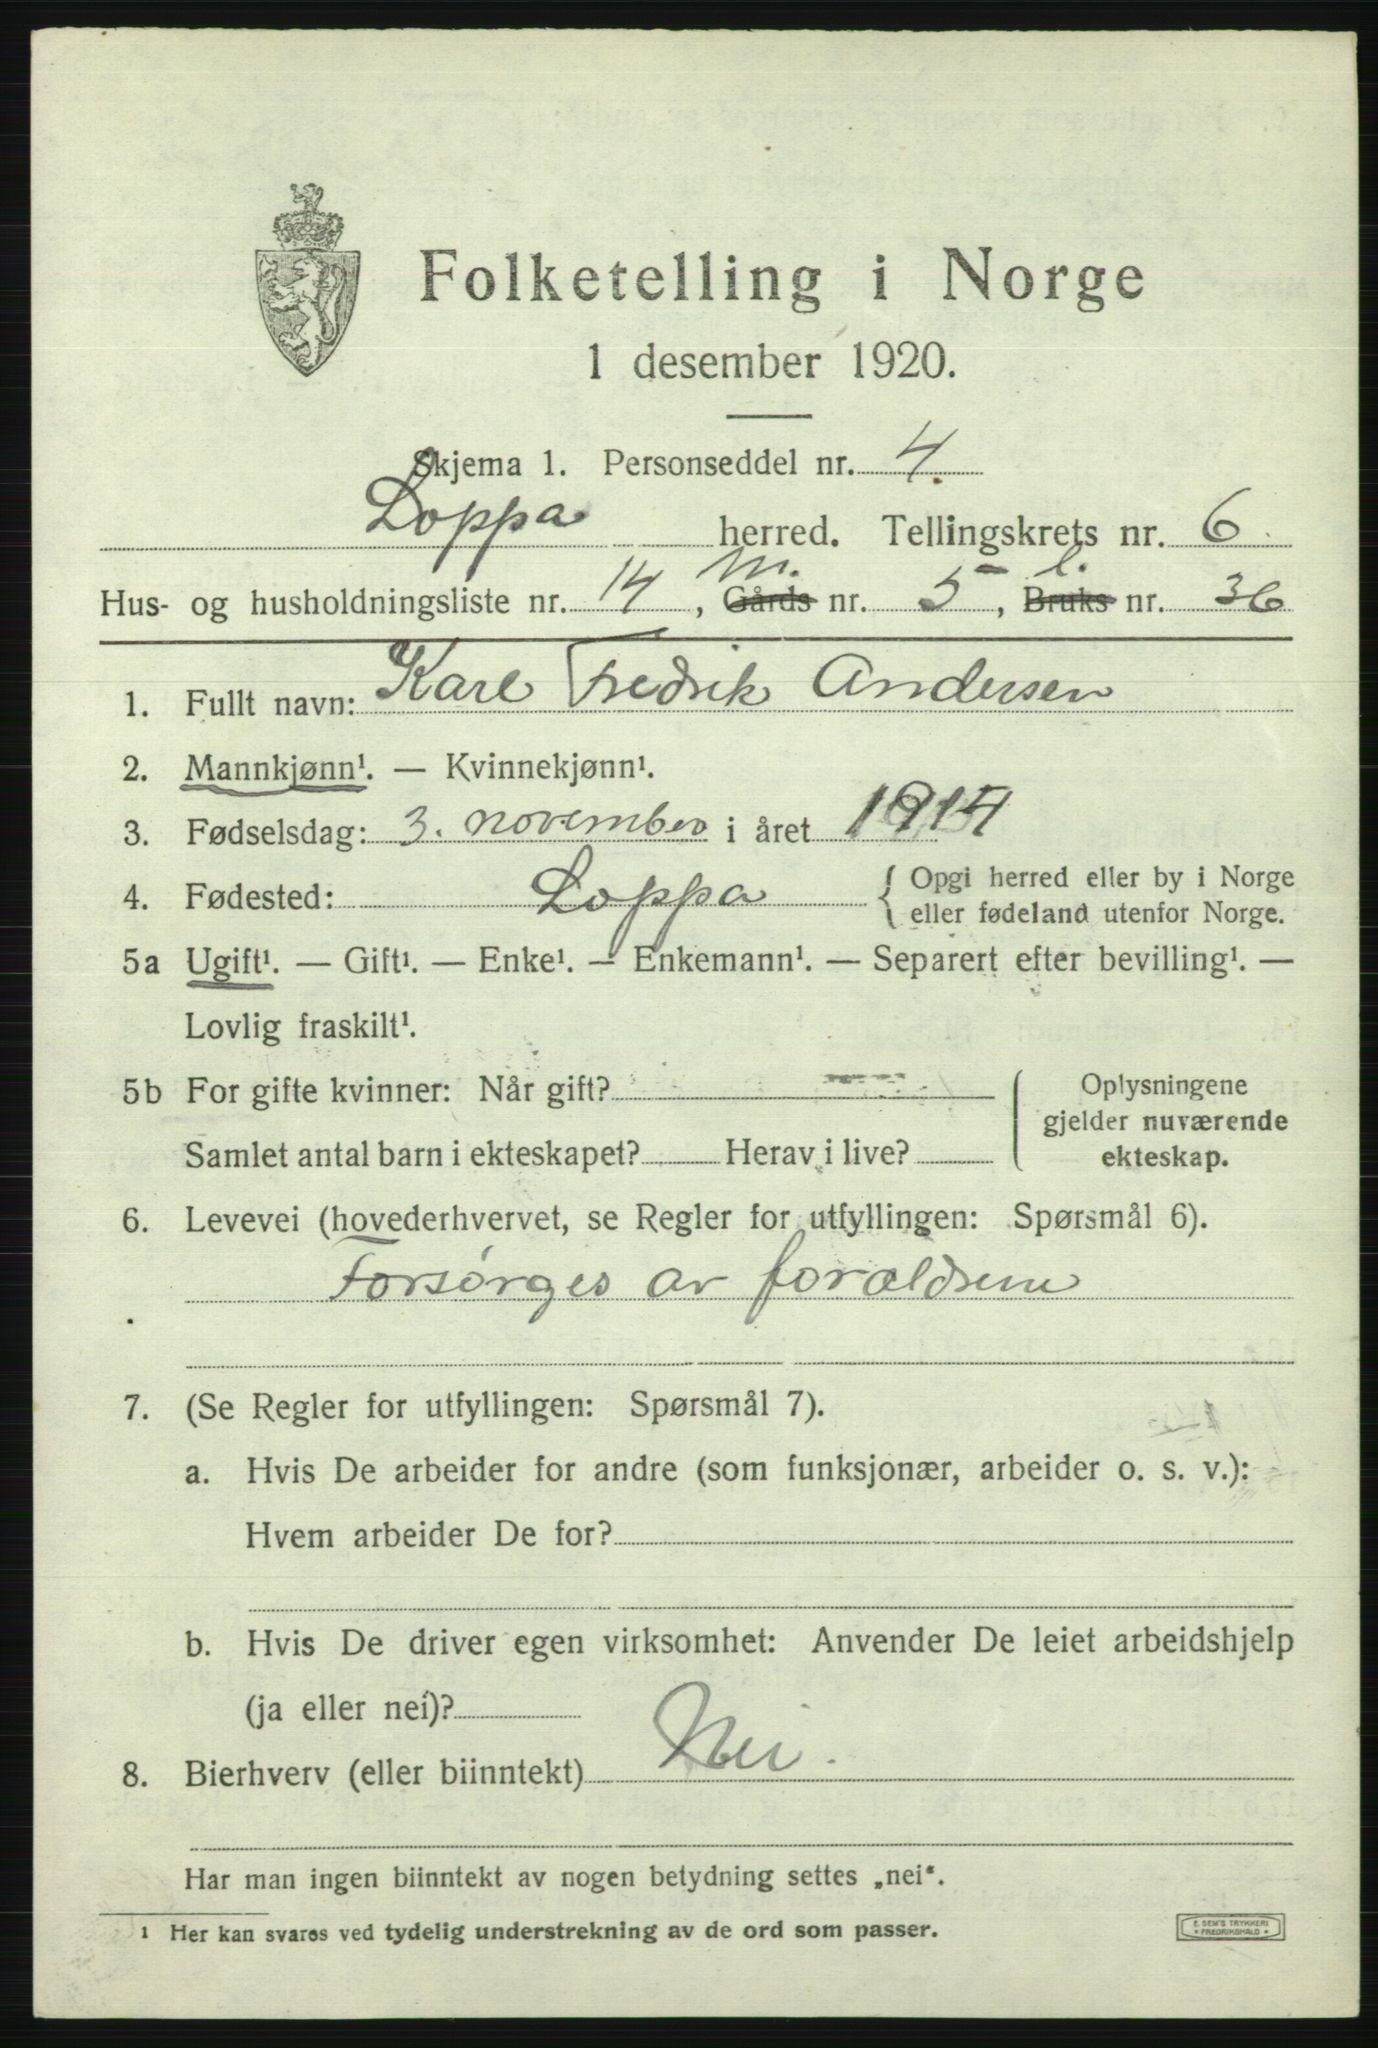 Folketelling i Norge
1 desember 1920.
Skjema 1. Personseddel nr. 4.
Loppa herred. Tellingskrets nr. 6
m. l.
Hus- og husholdningsliste nr. 14, Gårds nr. 5, Bruks nr. 36
1. Fullt navn: Karl Fredrik Andersen
2. Mannkjønn¹. — Kvinnekjønn¹.
3. Fødselsdag: 3. november i året
4. Fødested: Loppa { Opgi herred eller by i Norge
eller fødeland utenfor Norge.
5a Ugift¹. — Gift¹. — Enke¹. — Enkemann¹. — Separert efter bevilling¹. —
Lovlig fraskilt¹.
5b For gifte kvinner: Når gift?
Samlet antal barn i ekteskapet? Herav i live?
Oplysningene
gjelder nuværende
ekteskap.
6. Levevei (hovederhvervet, se Regler for utfyllingen: Spørsmål 6).
Forsørges av forældrene
7. (Se Regler for utfyllingen: Spørsmål 7).
a. Hvis De arbeider for andre (som funksjonær, arbeider o. s. v.):
Hvem arbeider De for?
b. Hvis De driver egen virksomhet: Anvender De leiet arbeidshjelp
(ja eller nei)?
8. Bierhverv (eller biinntekt) Nei.
Har man ingen biinntekt av nogen betydning settes „nei“.
¹ Her kan svares ved tydelig understrekning av de ord som passer.
E. SEM'S TRYKKERI
* FREDRIKSHALD *